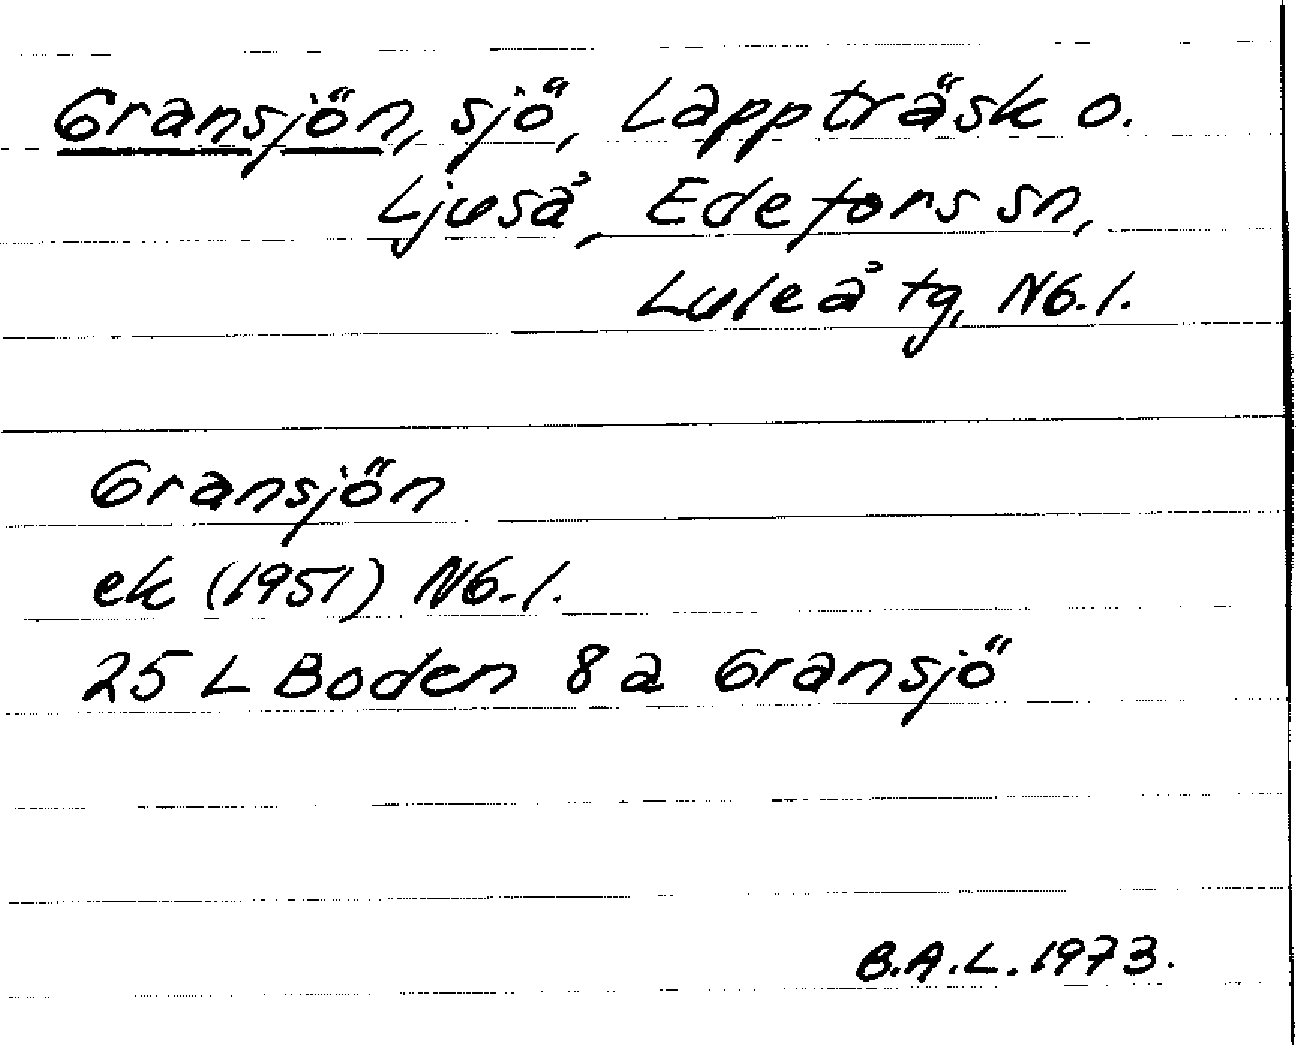 Gransjön, sjö, Lappträsk o.
Ljuså, Edefors sn,
Luleå tg, Nb. l.
Gransjön
ek (1951) Nb. l.
25 L Boden 8 a Gransjö
B.A.L. 1973.